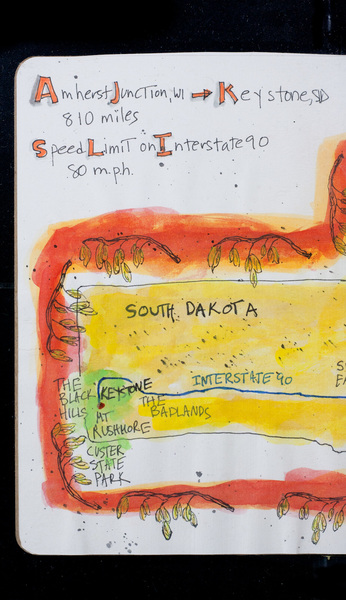 Amherst Junction, WI → Keystone, SD
810 miles
Speed Limit on Interstate 90
80 m.p.h.
SOUTH DAKOTA
INTERSTATE 90
THE
BLACK
HILLS
KEYSTONE
MT
RUSHMORE
THE
BADLANDS
CUSTER
STATE
PARK